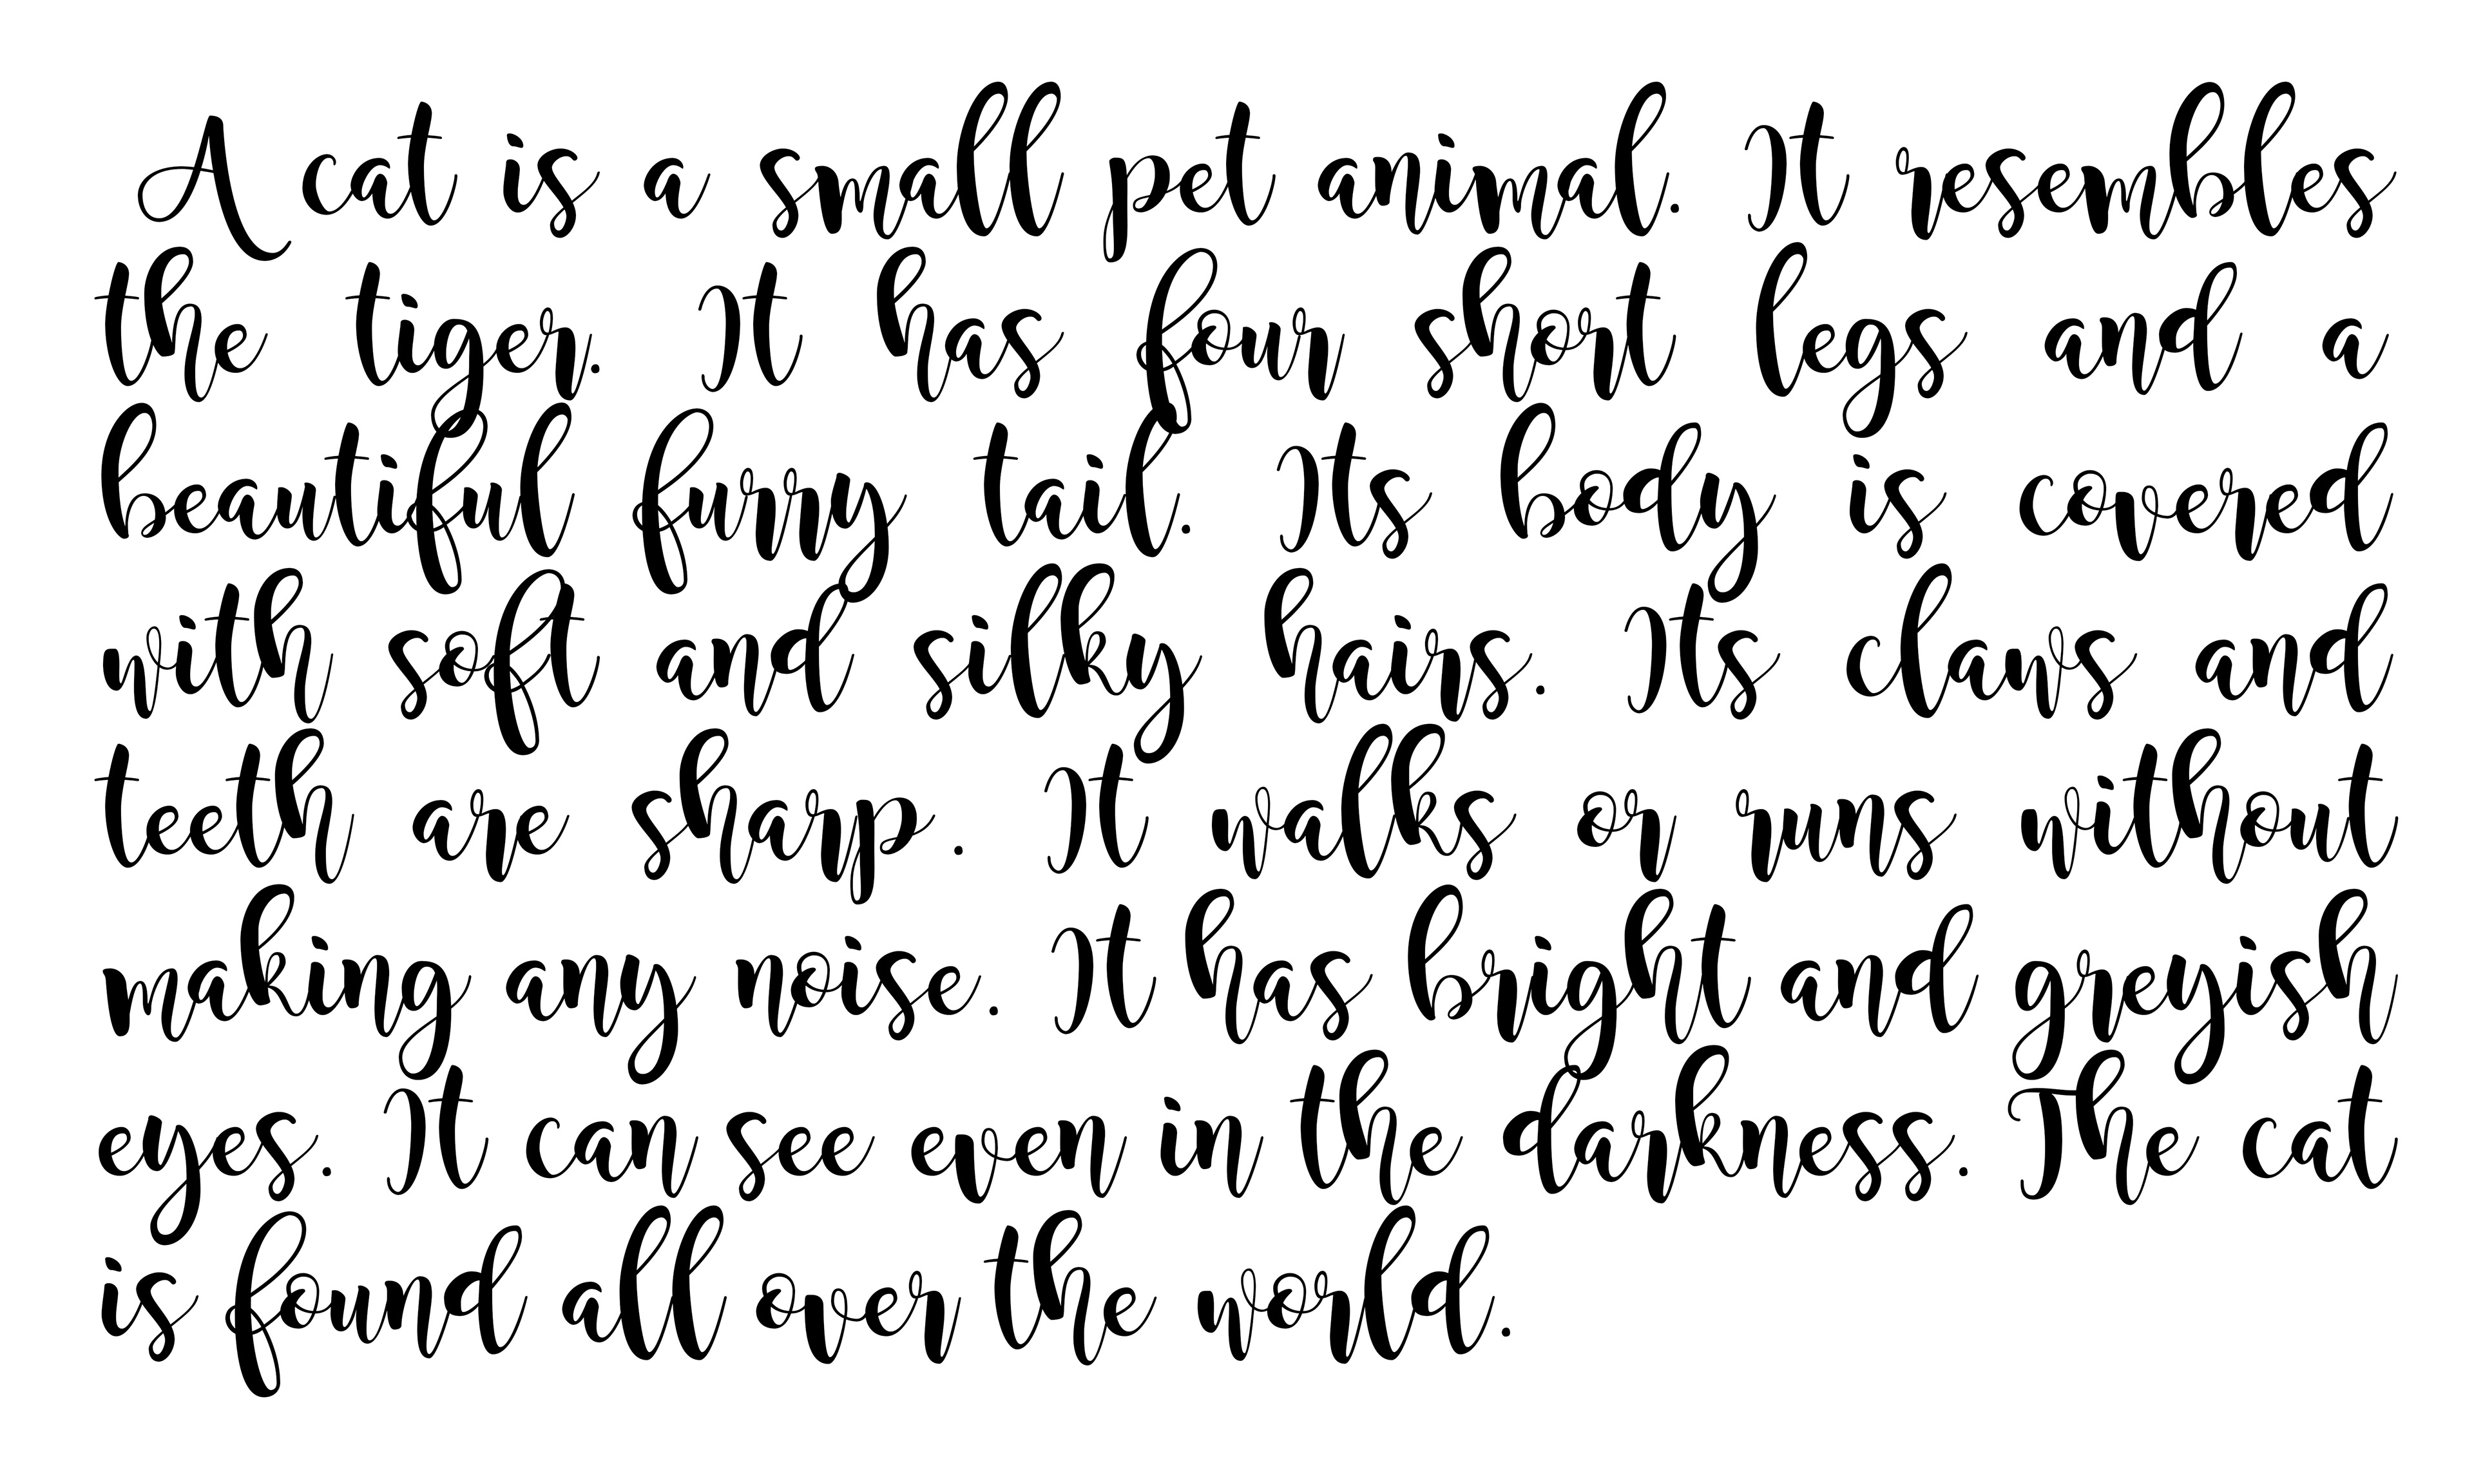 A cat is a small pet animal. It resembles
the tiger. It has four short legs and a
beautiful furry tail. Its body is covered
with soft and silky hairs. Its claws and
teeth are sharp. It walks or runs without
making any noise. It has bright and greyish
eyes. It can see even in the darkness. The cat
is found all over the world.